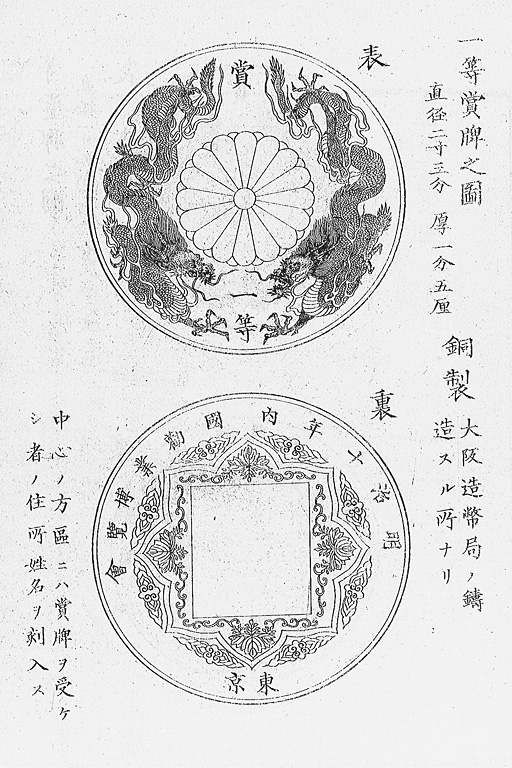 一等賞牌之圖
直径二寸三分 厚一分五厘
銅製 大阪造幣局ノ鑄
造スル所ナリ
表
賞
一等
裏
明治十年内國勸業博覽會
東京
中心ノ方區ニハ賞牌ヲ受ケ
シ者ノ住所姓名ヲ刻入ス